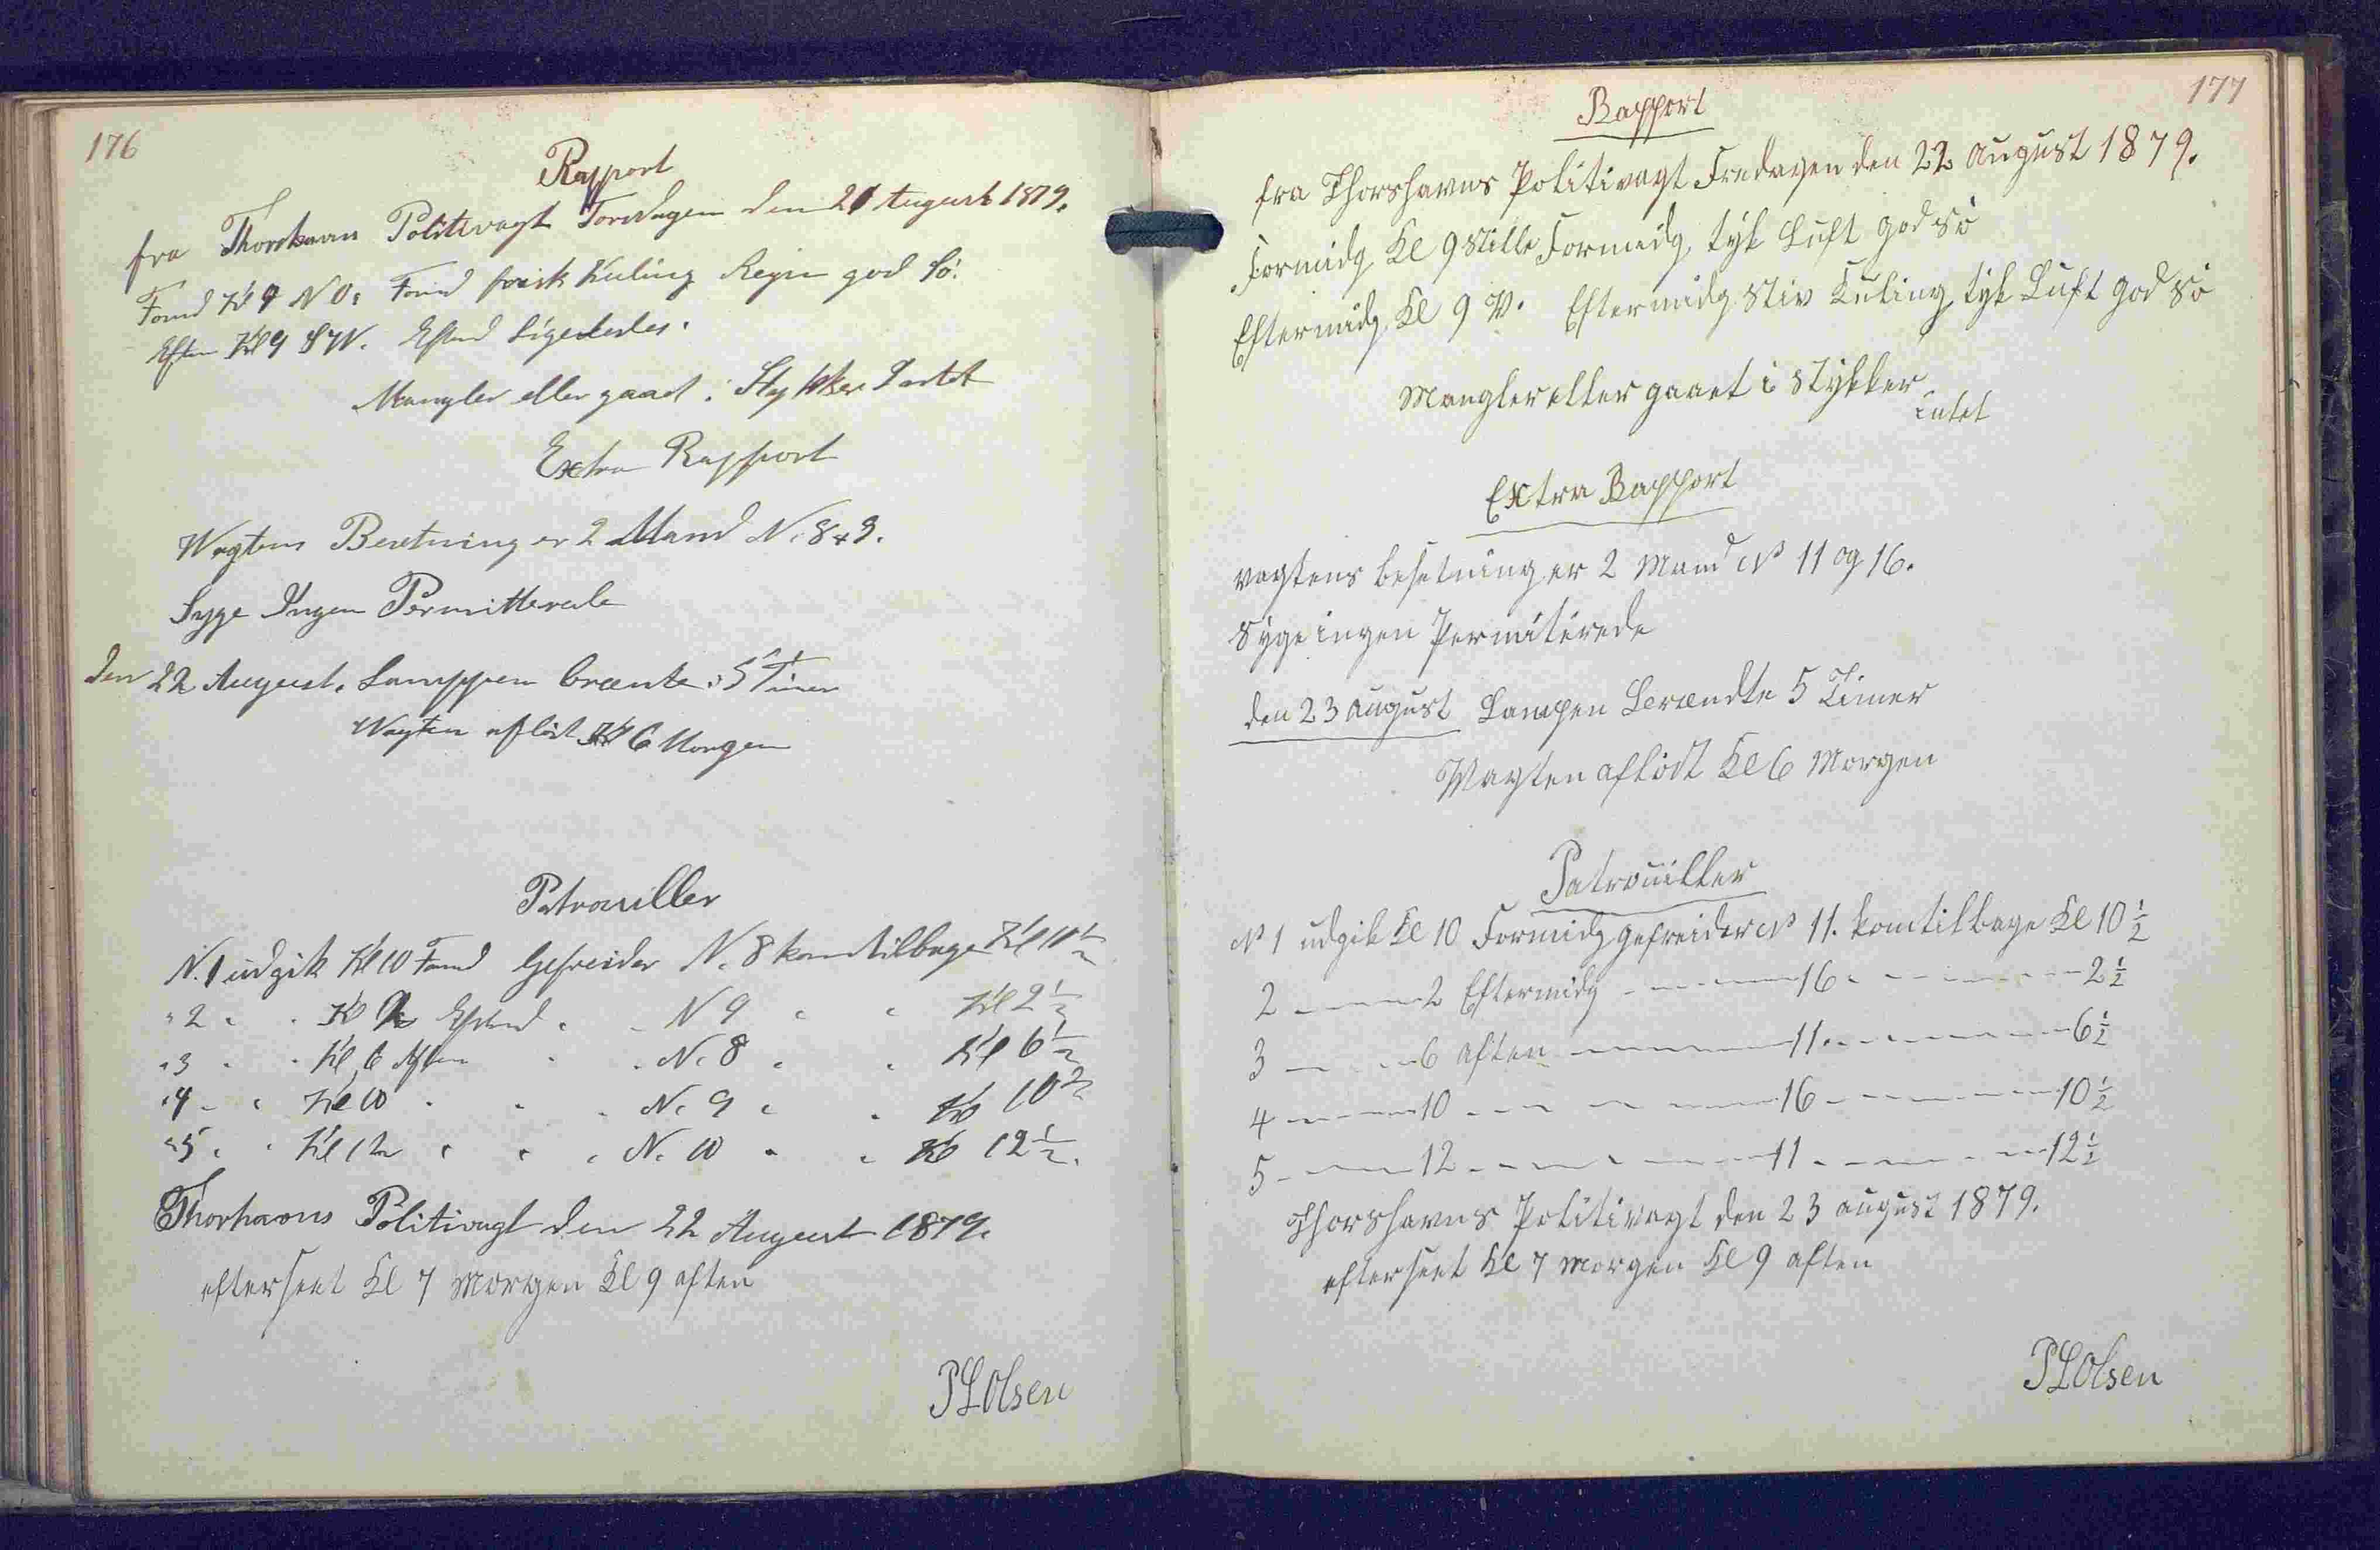 176
Rapport
fra Thorshavns Politivagt Torsdagen den 21 August 1879.
Formd Kl 9 NO: Formd frisk Kuling Regn god Sö.
Efterm Kl 9 SW. Eftmd ligeledes.
Mangler eller gaaet i Stykker Intet
Extra Rapport
Vagtens Besetning er 2 Mand N. 8 & 9.
Syge Ingen Permitterede
den 22 August. Lamppen brænte 5 Timer
Vagten aflöst Kl 6 Morgen
Patrouiller
N. 1 udgik Kl 10 Formd Gefreider N. 8 kom tilbage Kl 10 ½
" 2 " " Kl 2 Eftmd " " N 9 " " Kl 2 ½
" 3 " " Kl 6 Aften " " N. 8 " " Kl 6 ½
" 4 " " Kl 10 " " " N. 9 " " Kl 10 ½
" 5 " " Kl 12 " " " N. 10 " " Kl 12 ½.
Thorshavns Politivagt den 22 August 1879.
efterseet Kl 7 Morgen Kl 9 aften
PLOlsen
177
Rapport
fra Thorshavns Politivagt Fredagen den 22 August 1879.
Formidg Kl 9 Stille Formidg tyk Luft god Sö
Eftermidg Kl 9 V. Eftermidg Stiv Kuling tyk Luft god Sö
Mangler eller gaaet i Stykker
intet
Extra Rapport
vagtens besetning er 2 Mand No 11 og 16.
Syge ingen Permiterede
den 23 August Lampen Brændte 5 Timer
Vagten aflöst Kl 6 Morgen
Patrouiller
No 1 udgik Kl 10 Formidg gefreider No 11. kom tilbage Kl 10 ½
2 — — 2 Eftermidg — — 16 — — 2 ½
3 — — 6 aften — — 11. — — 6 ½
4 — — 10 — — — 16 — — 10 ½
5 — — 12 — — — 11 — — 12 ½
Thorshavns Politivagt den 23 august 1879.
efterseet Kl 7 Morgen Kl 9 aften
PLOlsen